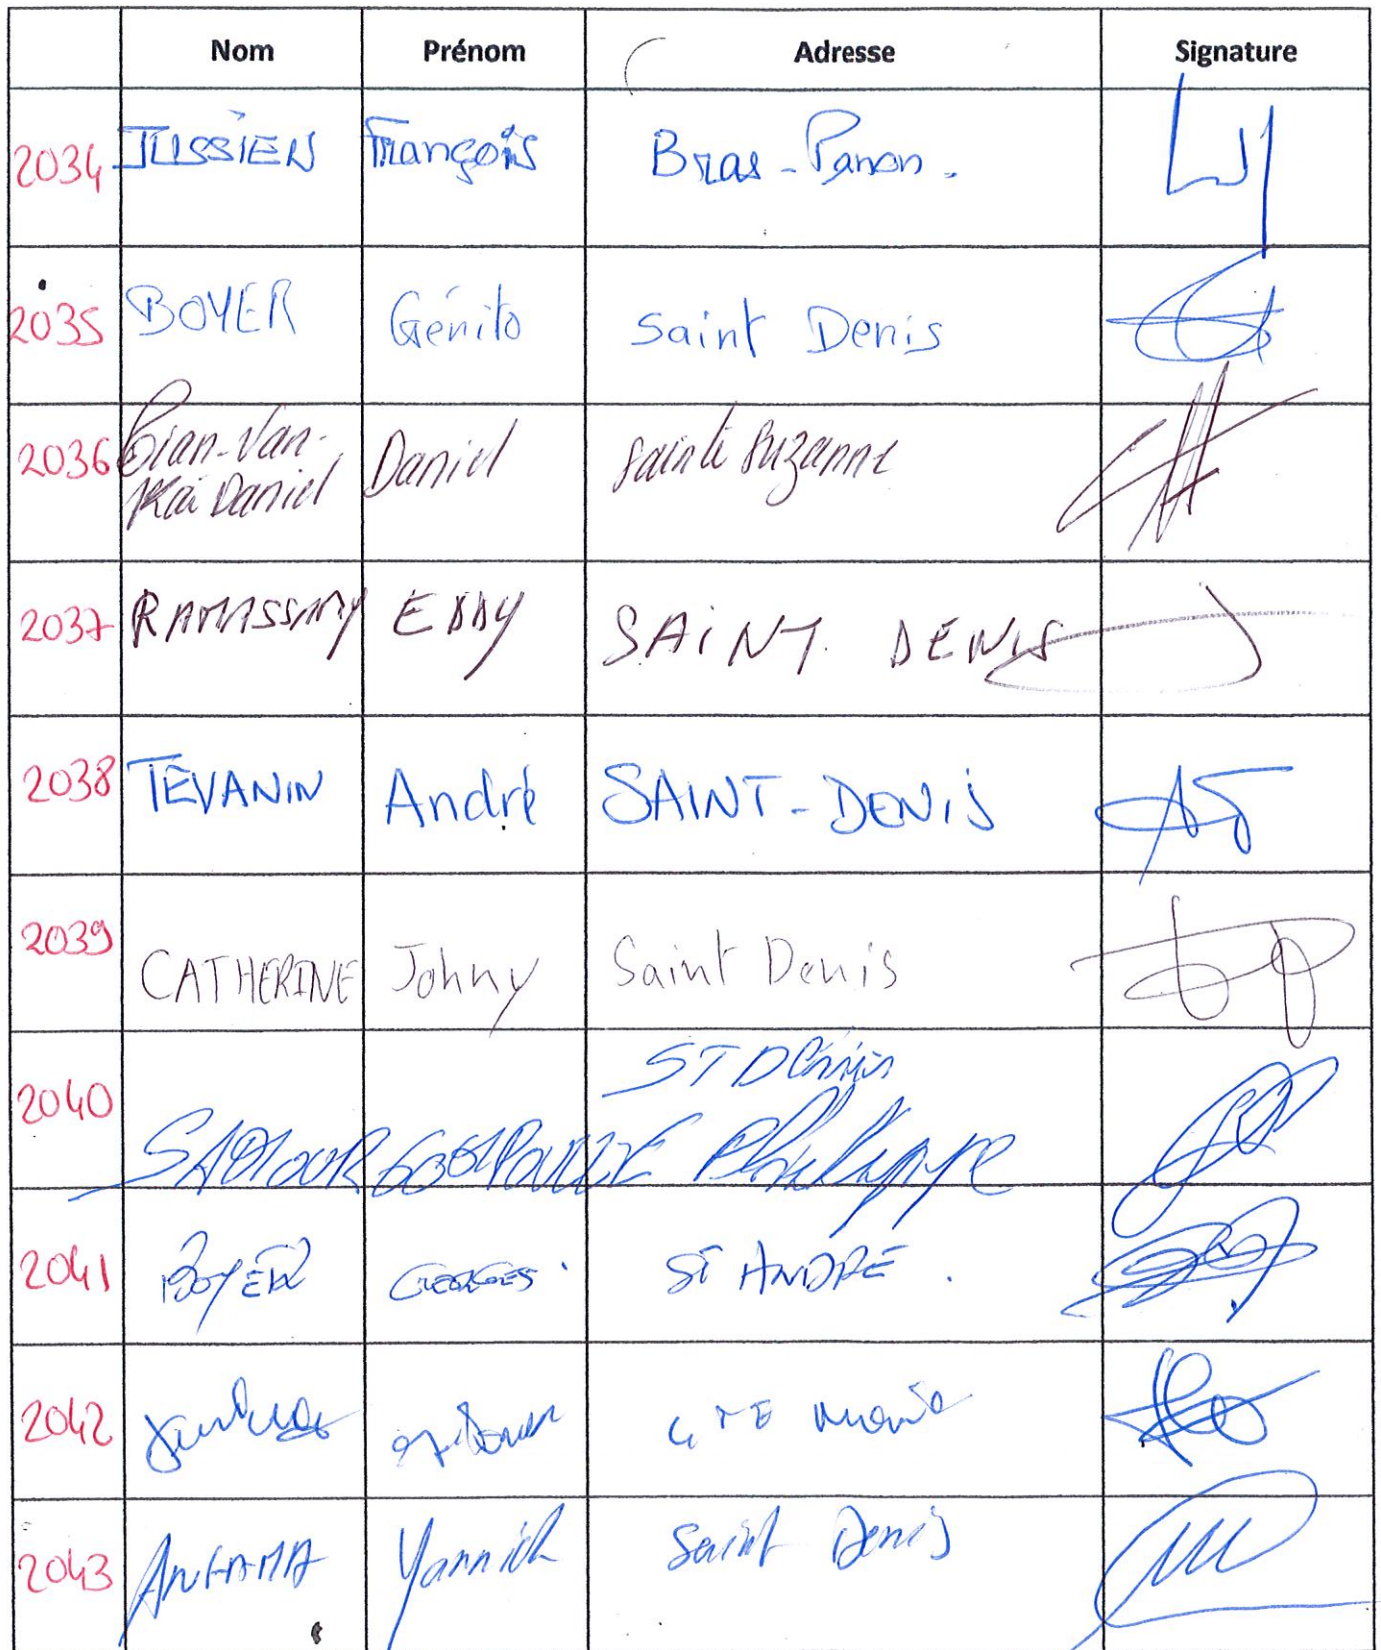 Nom Prénom Adresse Signature
2034 JUSSIEN François Bras-Panon.
2035 BOYER Génito Saint Denis
2036 Daniel Sainte Suzanne
Daniel
2037 RAMASSAMY EDDY SAINT DENIS
2038 TEVANIN André SAINT-DENIS
2039 CATHERINE Johny Saint Denis
ST Dénis
2040 Philippe
2041 BOYER GEORGES. ST ANDRE.
2042
2043 Yannick Saint Denis